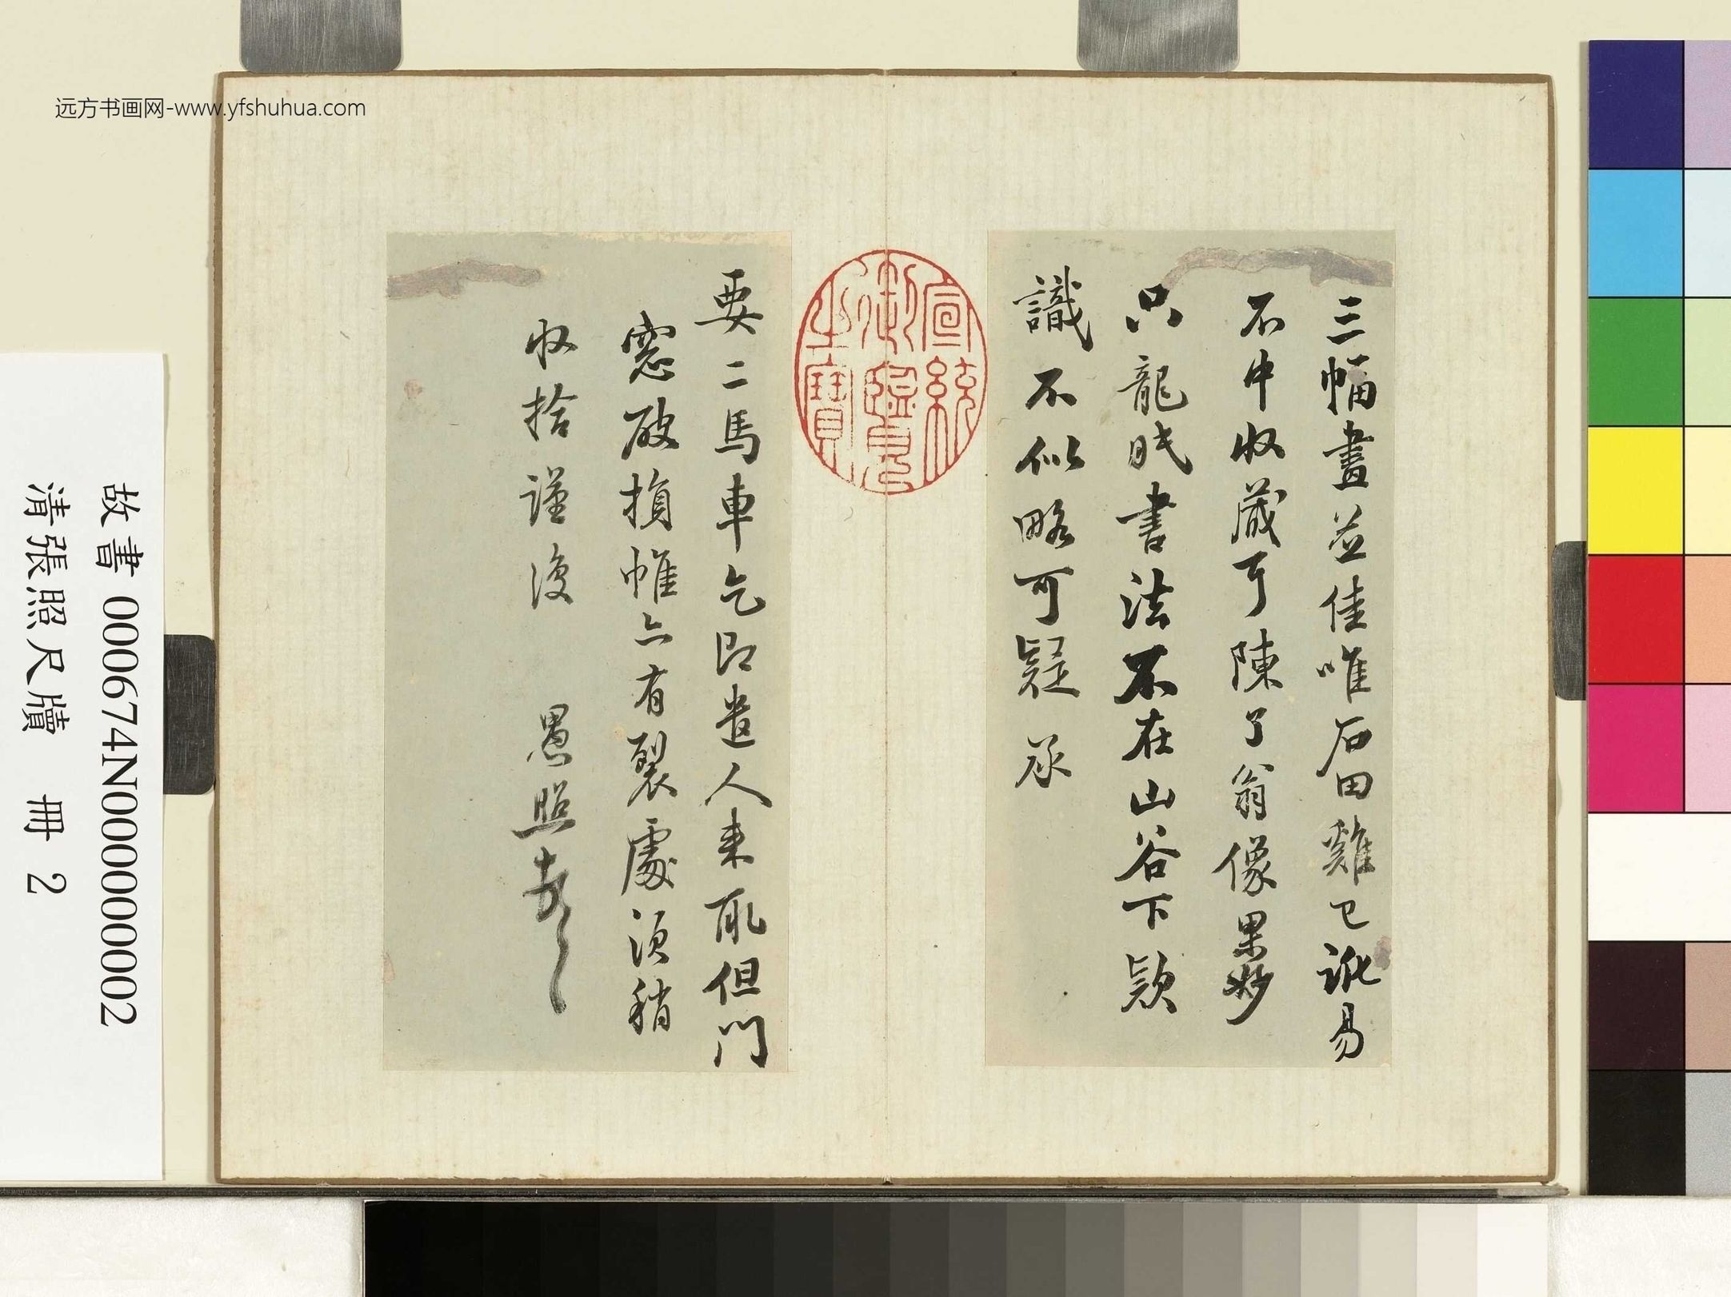 远方书画网-www.yfshuhua.com
三幅畫並佳唯石田雞已訛易
不中收藏耳陳了翁像果妙
只龍眠書法不在山谷下款
識不似略可疑承
宣統
御覽
之寶
要二馬車乞即遣人來取但門
窓破損帷亦有裂處須稍
收拾謹復 愚照
故書 000674N000000002
清張照尺牘 冊 2